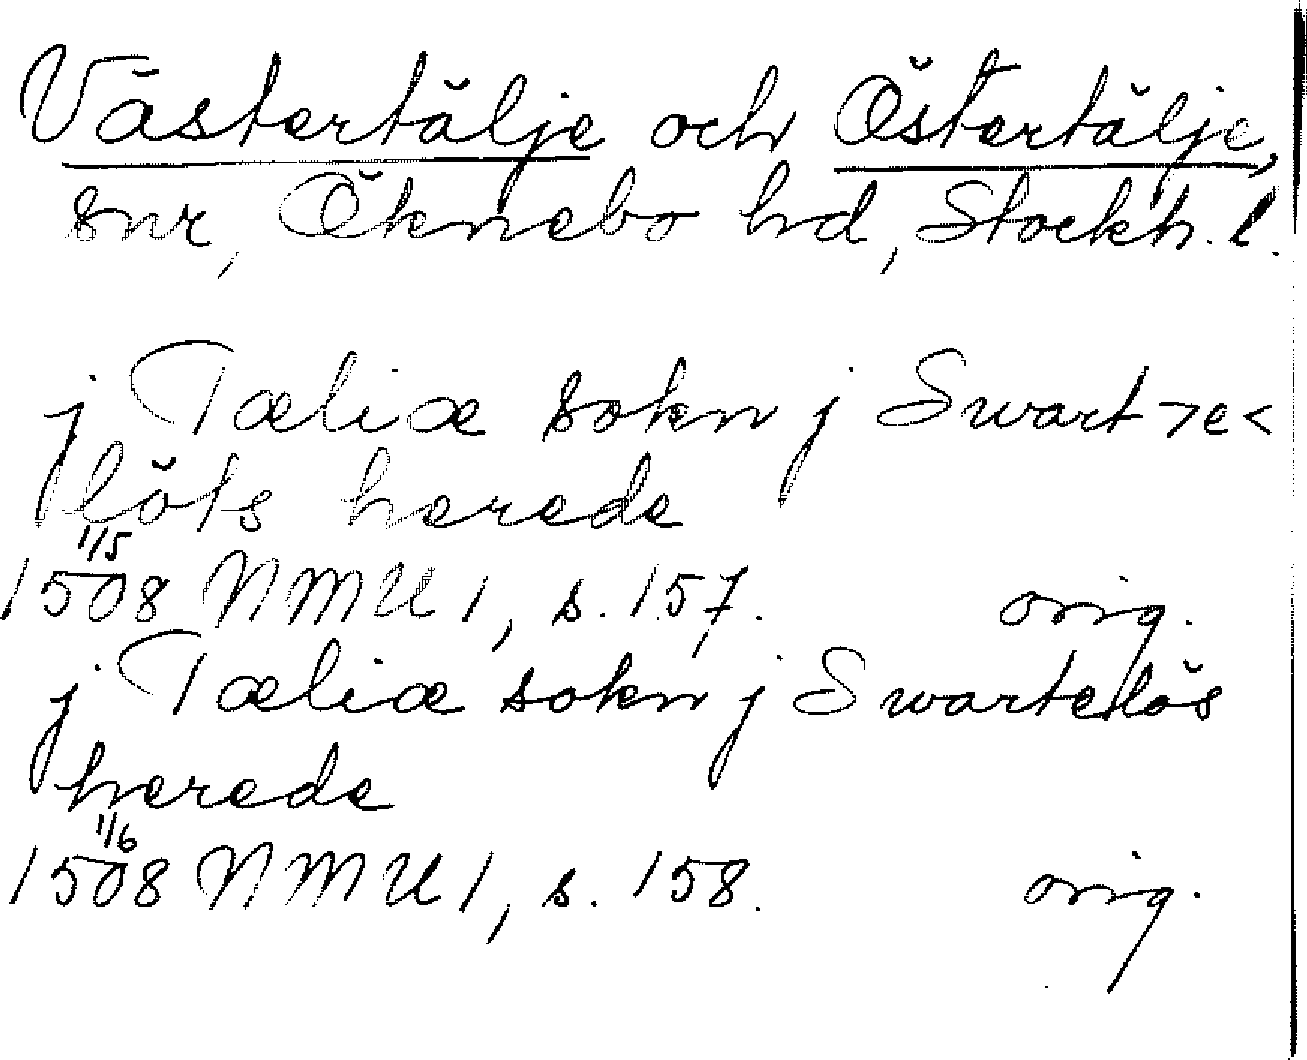 Västertälje och Östertälje,
snr, Öknebo hd, Stockh. l.
j Tæliæ sokn j Swart>e<
löts herede
1/5
1508 NMU 1, s. 157. orig.
j Tæliæ sokn j Swartelös
herede
1/6
1508 NMU 1, s. 158. orig.